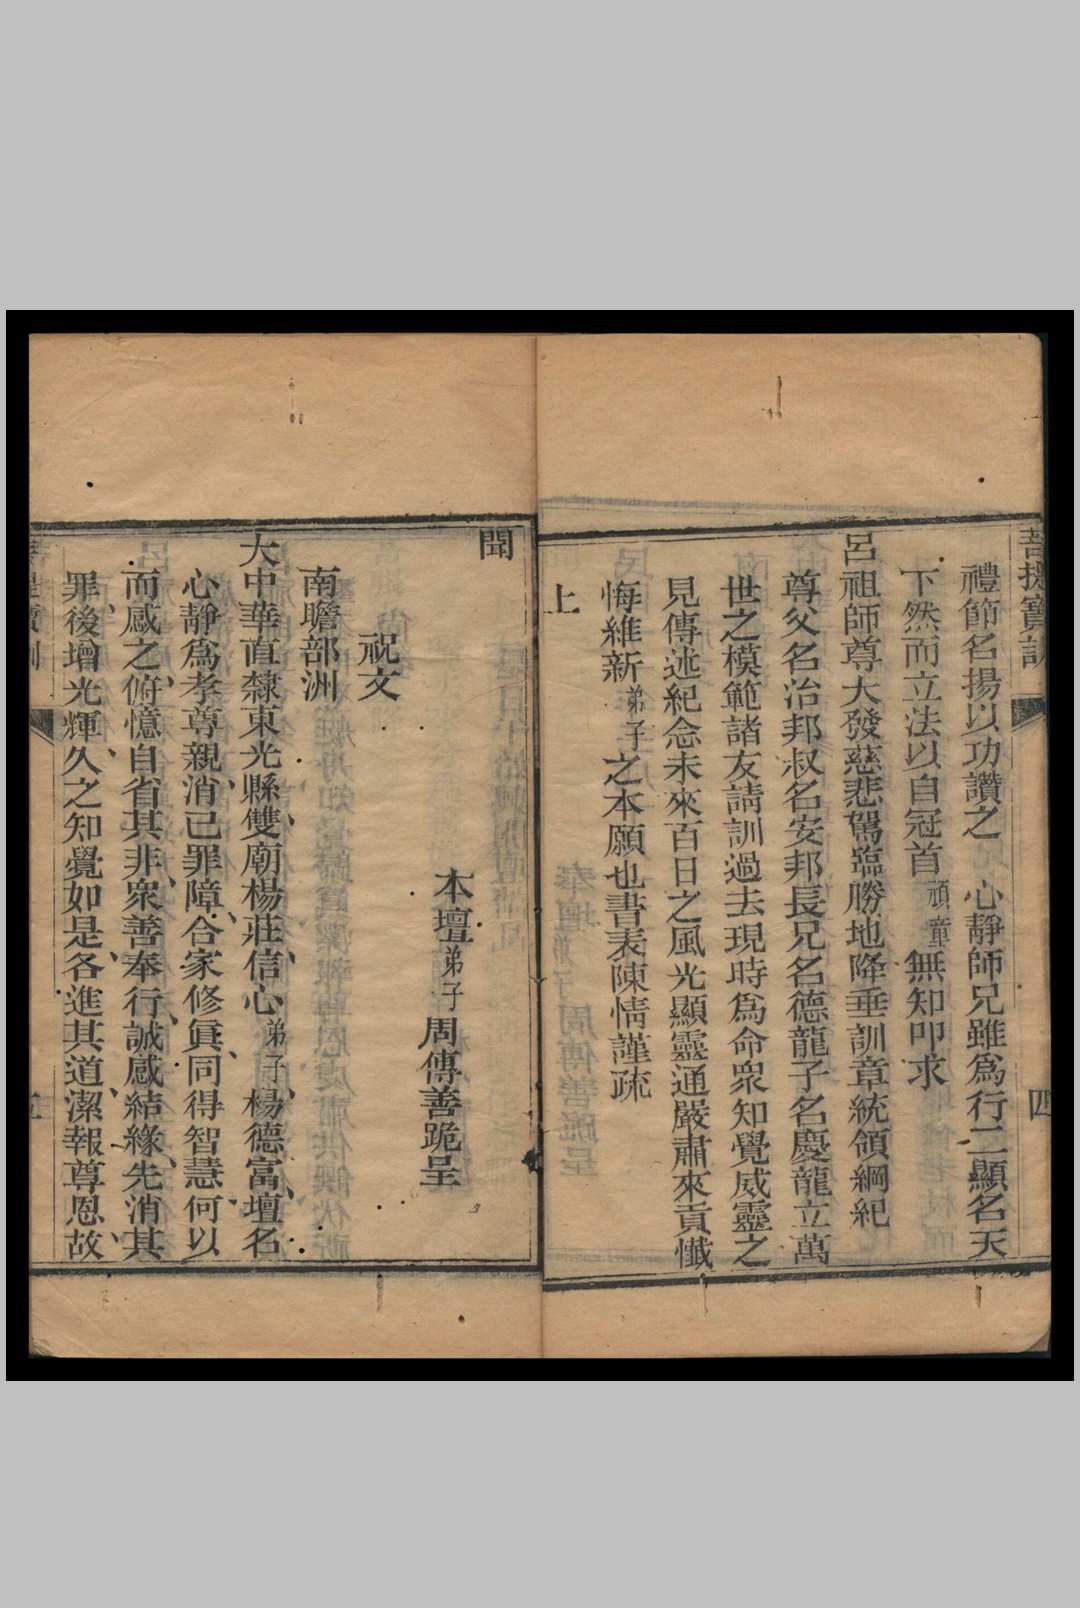 菩提寶訓
四
禮節名揚以功讚之 心靜師兄雖爲行二顯名天
下然而立法以自冠首頑童無知叩求
呂祖師尊大發慈悲駕臨勝地降垂訓章統領綱紀
尊父名治邦叔名安邦長兄名德龍子名慶龍立萬
世之模範諸友請訓過去現時爲命衆知覺威靈之
見傳述紀念未來百日之風光顯靈通嚴肅來貢懺
悔維新弟子之本願也書表陳情謹疏
上
聞
本壇弟子周傳善跪呈
祝文
南瞻部洲
大中華直隸東光縣雙廟楊莊信心弟子楊德富壇名
心靜爲孝尊親消己罪障合家修眞同得智慧何以
而感之俯憶自省其非衆善奉行誠感結緣先消其
罪後增光輝久之知覺如是各進其道潔報尊恩故